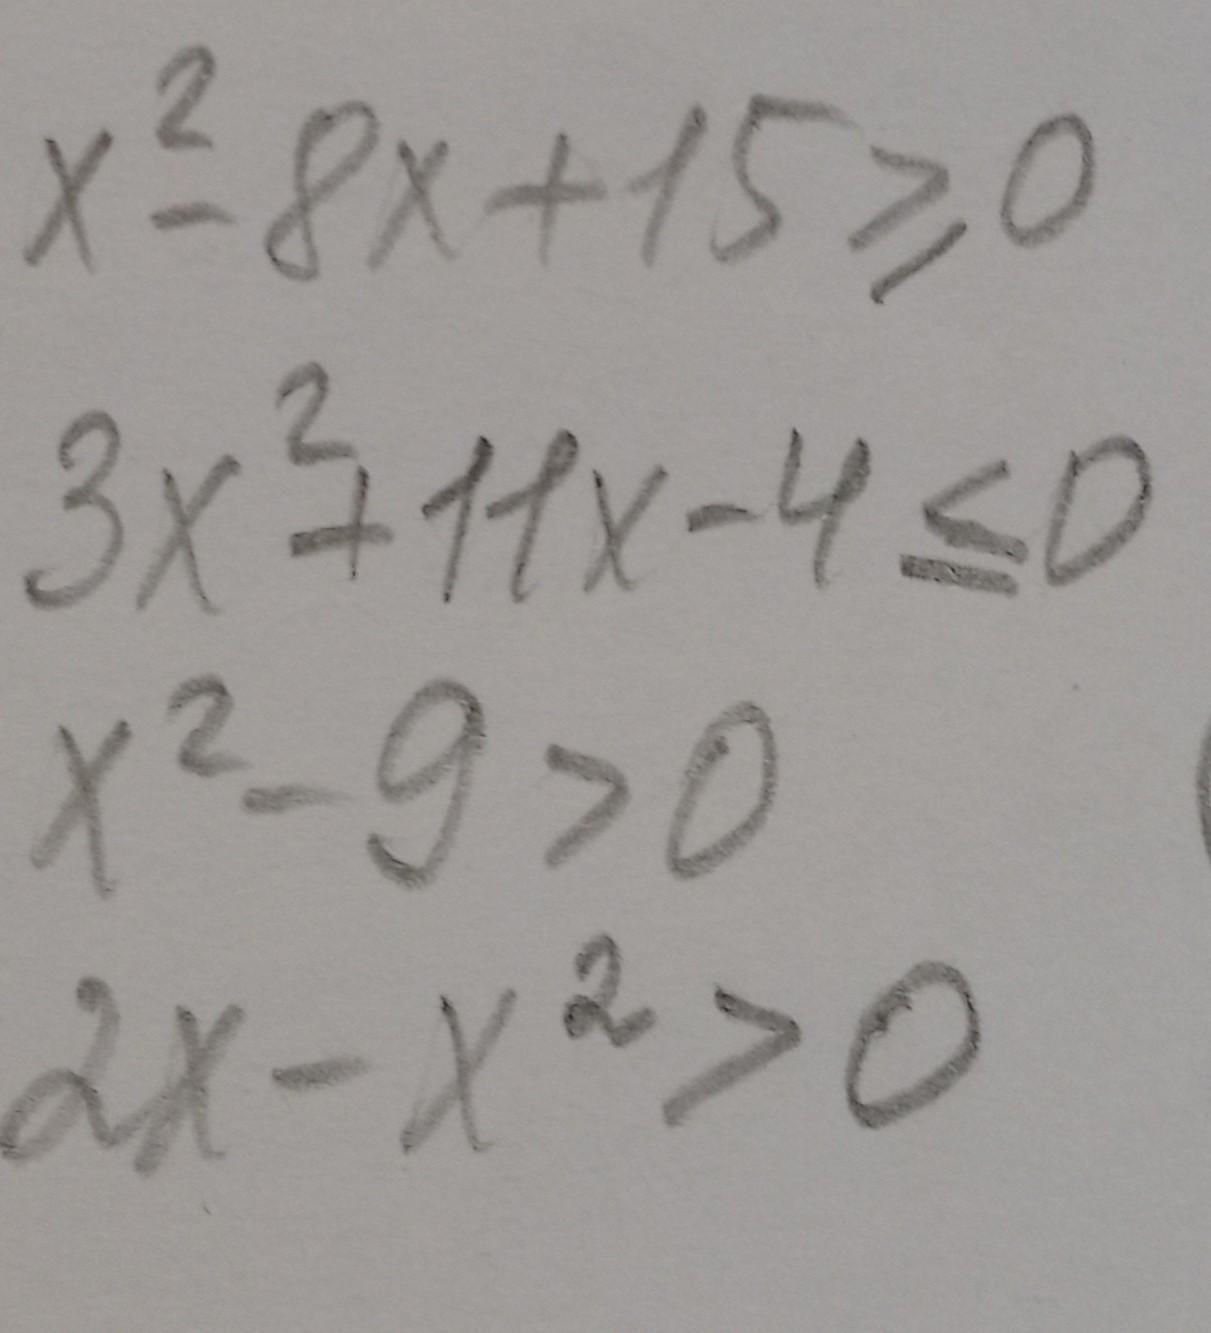 x² - 8x + 15 ⩾ 0
3x² + 11x - 4 ≤ 0
x² - 9 > 0
2x - x² > 0